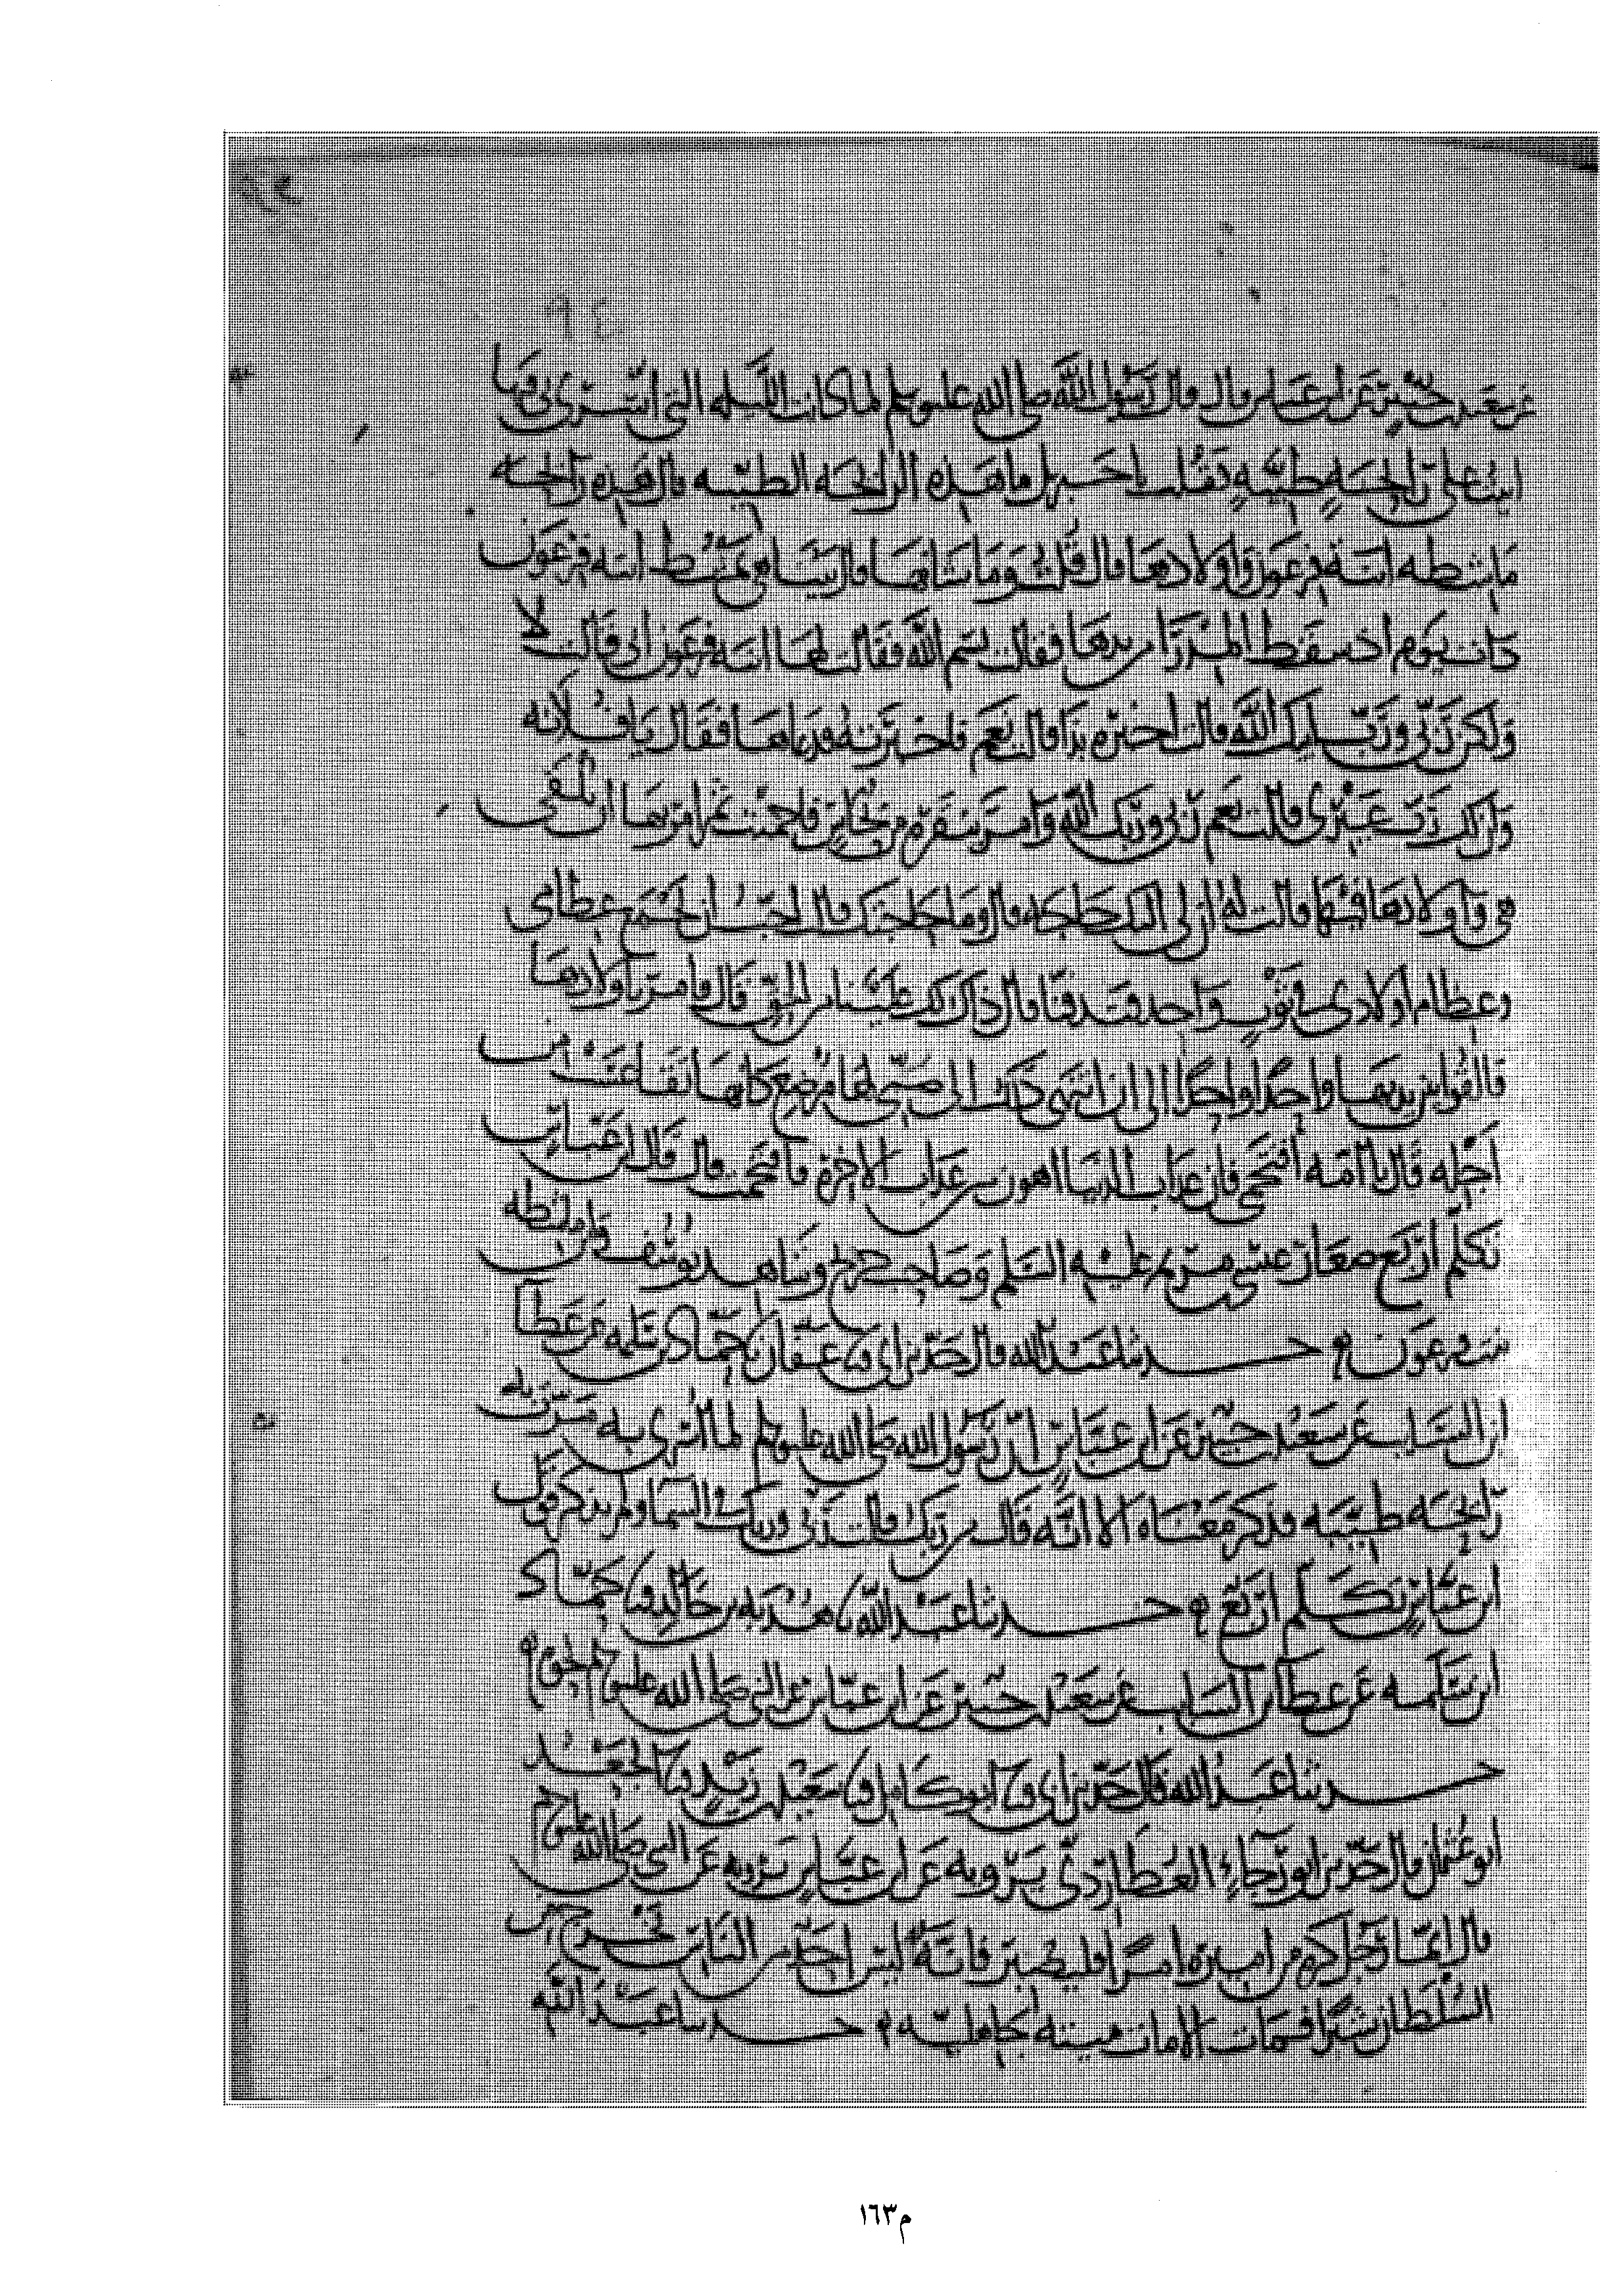 ٩٤
عن سعيد بن جبير عن ابن عباس قال قال رسول الله صلى الله عليه وسلم لما كانت الليله التي اسري بي فيها
اتت علي رايحة طيبة فقلت يا جبريل ما هذه الرايحه الطيبه قال هذه رايحه
ماشطه ابنة فرعون واولادها قال قلت وما شانها قال بينا هي تمشط ابنه فرعون
ذات يوم اذ سقط المدرا من يدها فقالت بسم الله فقالت لها ابنه فرعون ابي قالت لا
ولكن ربي ورب ابيك الله قالت اخبره بذا قالت نعم فاخبرته فدعاها فقال يا فلانه
وان لك رب غيري قالت نعم ربي وربك الله وامر ببقرة من نحاس فاحميت ثم امر بها ان تلقى
هي واولادها فيها قالت له ان لي اليك حاجه قال وما حاجتك قالت احب ان تجمع عظامي
وعظام اولادي في ثوب واحد وتدفنا قال ذاك لك علينا من الحق قال فامر باولادها
فالقوا بين يديها واحدا واحدا الى ان انتهى ذلك الى صبي لها مرضع كانها تقاعست من
اجله قال يا امه اقتحمي فان عذاب الدنيا اهون من عذاب الاخرة فاقتحمت قال قال ابن عباس
تكلم اربع صغار عيسى بن مريم عليه السلم وصاحب جريج وشاهد يوسف وابن ماشطه
بنت فرعون حدثنا عبد الله قال حدثني ابي ثنا عفان ثنا حماد بن سلمه عن عطآ
ابن السايب عن سعيد بن جبير عن ابن عباس ان رسول الله صلى الله عليه وسلم لما اسري به مرت به
رايحه طيبه فذكر معناه الا انه قال من ربك قالت ربي وربك من في السما ولم يذكر قول
ابن عباس تكلم اربع حدثنا عبد الله ثنا هدبه بن خالد ثنا حماد
ابن سلمه عن عطا بن السايب عن سعيد بن جبير عن ابن عباس عن النبي صلى الله عليه وسلم نحوه
حدثنا عبد الله قال حدثني ابي ثنا ابو كامل ثنا سعيد بن زيد ثنا الجعد
ابو عثمان قال حدثني ابو رجاء العطاردي يرويه عن ابن عباس يرويه عن النبي صلى الله عليه وسلم
قال ايما رجل كره من اميره امرا فليصبر فانه ليس احد من الناس يخرج من
السلطان شبرا فمات الا مات ميتة جاهليه حدثنا عبد الله
م١٦٣